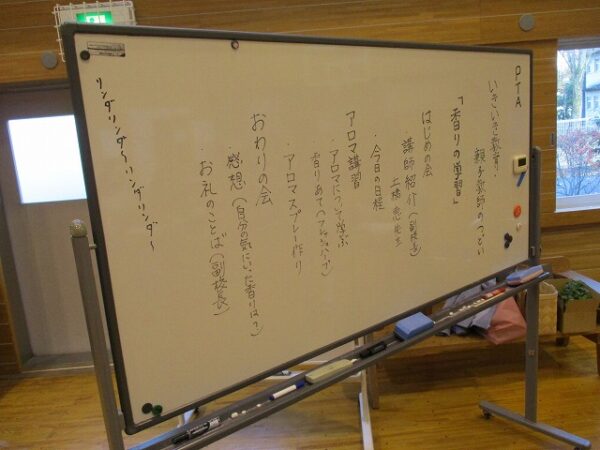 PTA
いきいき教育・
親子教師のつどい
「香りの学習」
はじめの会
講師紹介(副校長)
先生
・今日の日程
アロマ講習
・アロマについて学ぶ
香りあて(フレッシュハーブ)
・アロマスプレー作り
おわりの会
・感想(自分の気にいった香りは?)
・お礼のことば(副校長)
リンダリンダ〜リンダリンダ〜